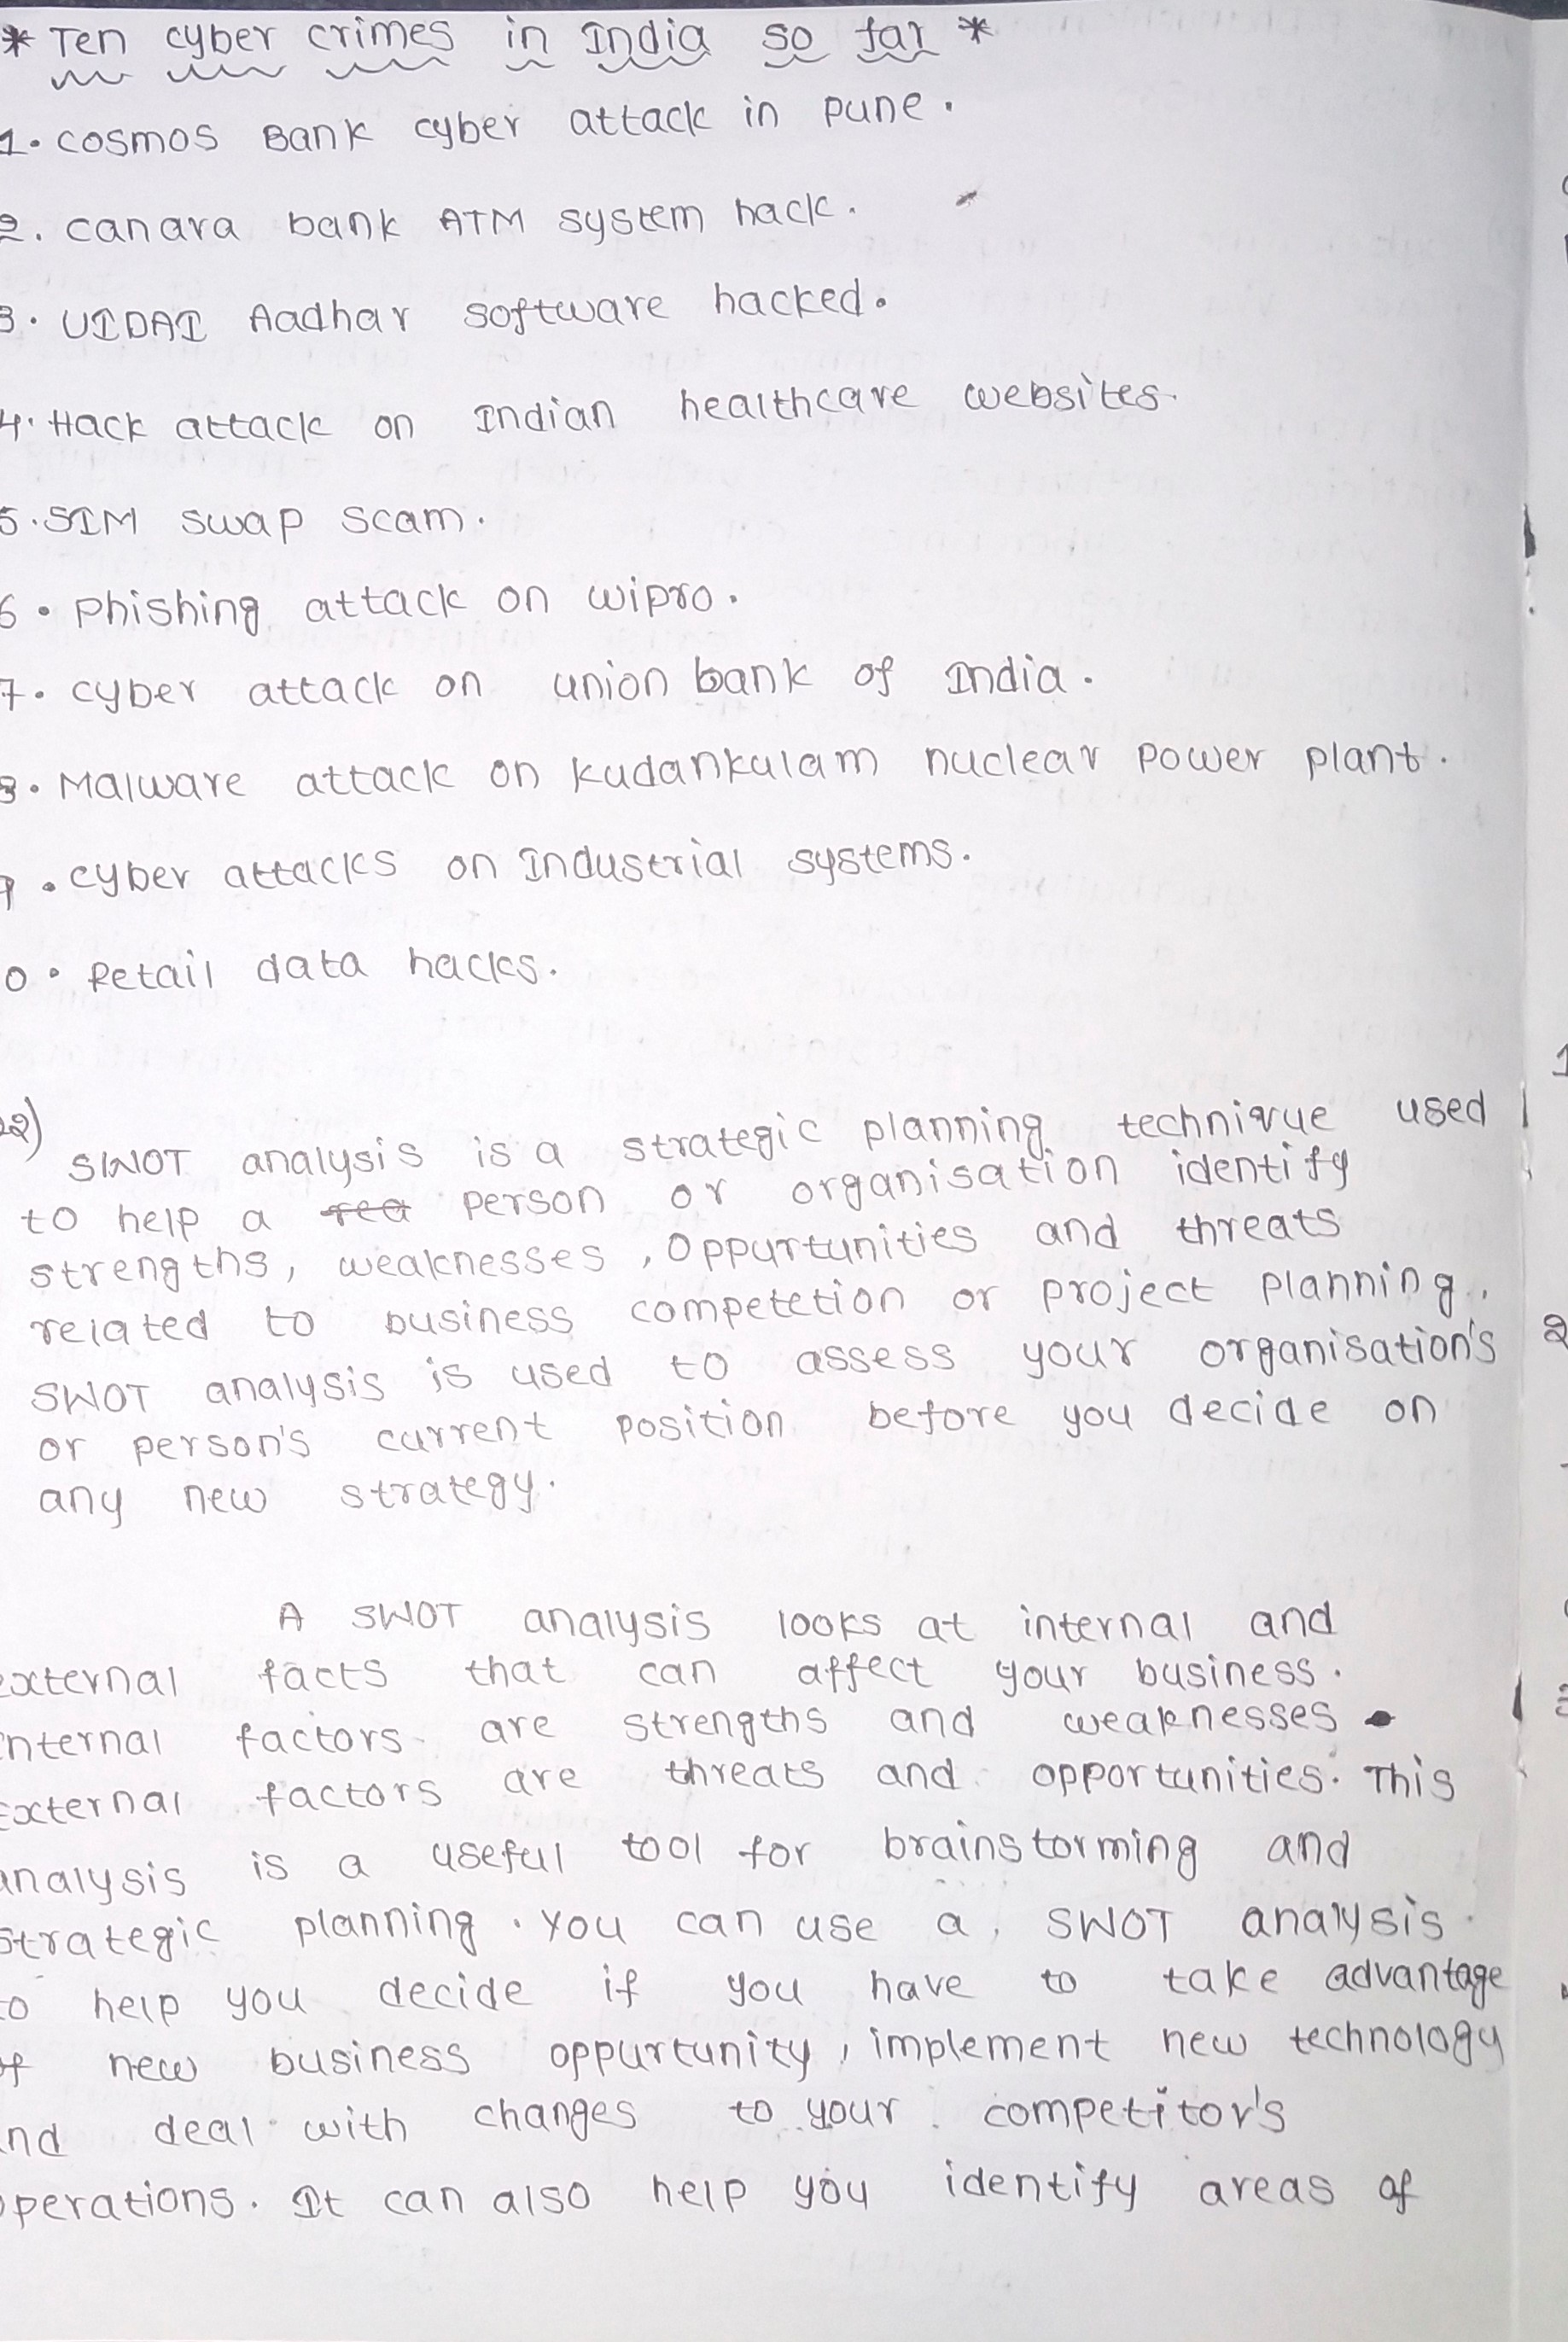 * Ten cyber crimes in India so far *
1. cosmos Bank cyber attack in pune.
2. canara bank ATM system hack.
3. UIDAI Aadhar software hacked.
4. Hack attack on Indian healthcare websites.
5. SIM swap scam.
6. Phishing attack on wipro.
7. cyber attack on union bank of India.
8. Malware attack on kudankulam nuclear power plant.
9. cyber attacks on Industrial systems.
0. Retail data hacks.
22)
SWOT analysis is a strategic planning technique used
to help a rea person or organisation identify
strengths, weaknesses, Oppurtunities and threats
related to business competetion or project planning.
SWOT analysis is used to assess your organisation's
or person's current position before you decide on
any new strategy.
A SWOT analysis looks at internal and
external facts that can affect your business.
internal factors are strengths and weaknesses.
External factors are threats and opportunities. This
analysis is a useful tool for brainstorming and
strategic planning. You can use a SWOT analysis
to help you decide if you have to take advantage
of new business oppurtunity, implement new technology
and deal with changes to your competitor's
operations. It can also help you identify areas of